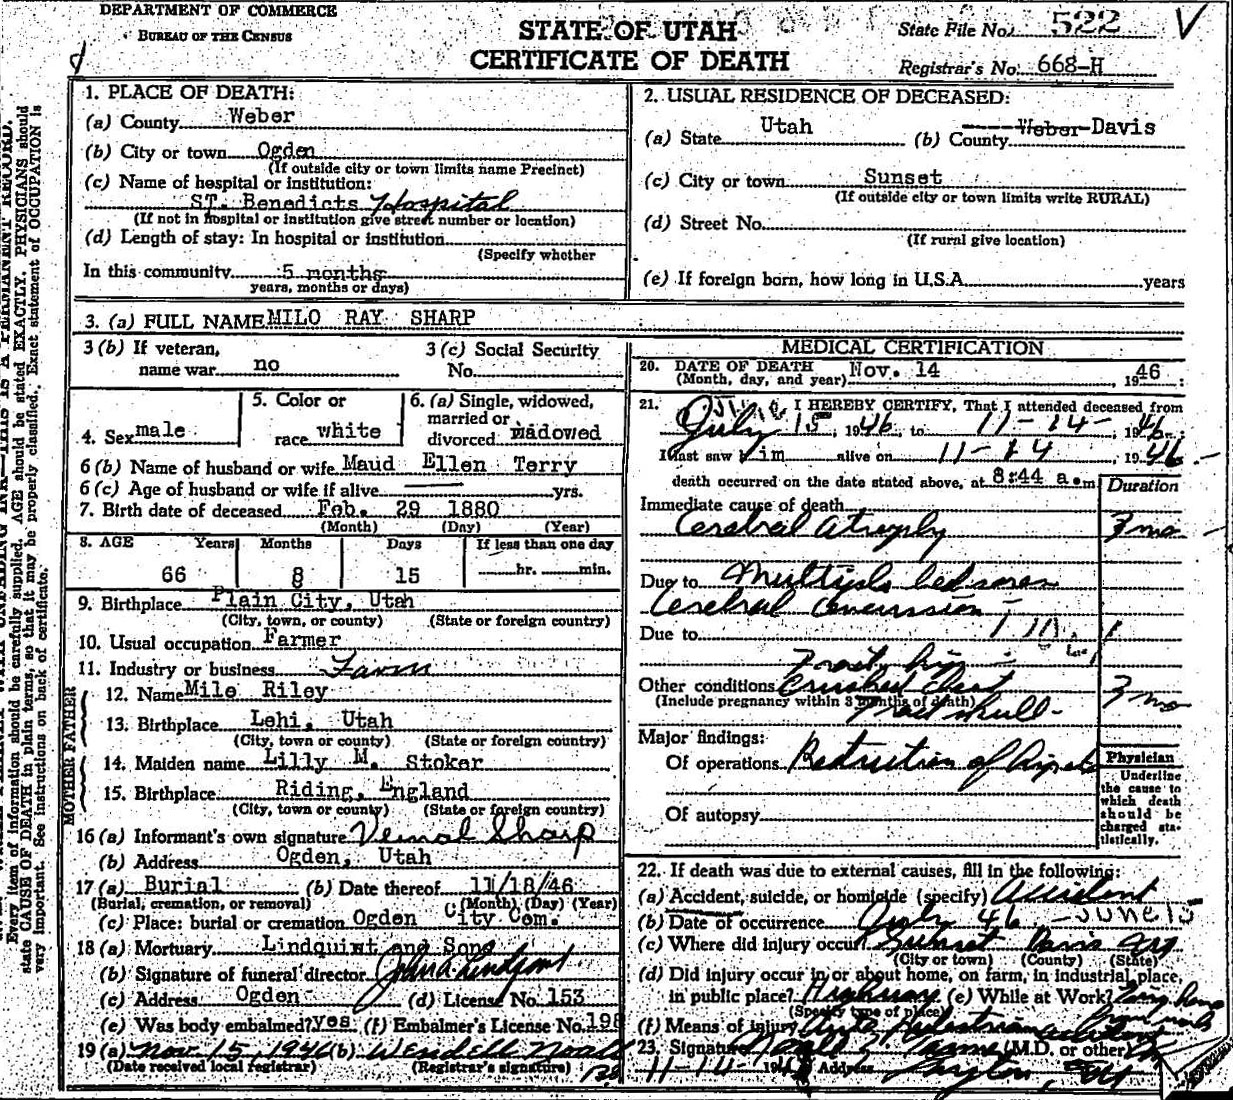 DEPARTMENT OF COMMERCE
BUREAU OF THE CENSUS
STATE OF UTAH
CERTIFICATE OF DEATH
State File No. 522
Registrar's No. 668-H
1. PLACE OF DEATH:
(a) County Weber
(b) City or town Ogden
(If outside city or town limits name Precinct)
(c) Name of hospital or institution:
ST. Benedicts Hospital
(If not in hospital or institution give street number or location)
(d) Length of stay: In hospital or institution
(Specify whether
In this community 5 months
years, months or days)
2. USUAL RESIDENCE OF DECEASED:
(a) State Utah (b) County Weber Davis
(c) City or town Sunset
(If outside city or town limits write RURAL)
(d) Street No.
(If rural give location)
(e) If foreign born, how long in U.S.A. years
3. (a) FULL NAME MILO RAY SHARP
3 (b) If veteran, name war no
3 (c) Social Security No.
4. Sex male
5. Color or race white
6. (a) Single, widowed, married or divorced widowed
6 (b) Name of husband or wife Maud Ellen Terry
6 (c) Age of husband or wife if alive yrs.
7. Birth date of deceased Feb. 29 1880
(Month) (Day) (Year)
8. AGE Years Months Days If less than one day
66 8 15 hr. min.
9. Birthplace Plain City, Utah
(City, town, or county) (State or foreign country)
10. Usual occupation Farmer
11. Industry or business Farm
FATHER
12. Name Milo Riley
13. Birthplace Lehi, Utah
(City, town or county) (State or foreign country)
MOTHER
14. Maiden name Lilly M. Stoker
15. Birthplace Riding, England
(City, town or county) (State or foreign country)
16 (a) Informant's own signature Vernal Sharp
(b) Address Ogden, Utah
17 (a) Burial (b) Date thereof 11/18/46
(Burial, cremation, or removal) (Month) (Day) (Year)
(c) Place: burial or cremation Ogden City Cem.
18 (a) Mortuary Lindquist and Sons
(b) Signature of funeral director
(c) Address Ogden (d) License No. 153
(e) Was body embalmed? yes (f) Embalmer's License No. 198
19 (a) Nov 15, 1946 (b) Wendell
(Date received local registrar) (Registrar's signature)
MEDICAL CERTIFICATION
20. DATE OF DEATH Nov. 14, 1946
(Month, day, and year)
21. I HEREBY CERTIFY, That I attended deceased from
July 15, 1946, to 11-14-, 1946
I last saw him alive on 11-14, 1946
death occurred on the date stated above, at 8:44 a.m
Duration
Immediate cause of death
Cerebral atrophy 3 mo
Due to Multiple bedsores
Cerebral Concussion
Due to
Fract hip
Other conditions Crushed chest 3 mo
(Include pregnancy within 3 months of death)
Fract skull
Major findings:
Of operations
Of autopsy
Physician
Underline the cause to which death should be charged statistically.
22. If death was due to external causes, fill in the following:
(a) Accident, suicide, or homicide (specify) Accident
(b) Date of occurrence July 46 - JUNE 15
(c) Where did injury occur? Sunset Davis
(City or town) (County) (State)
(d) Did injury occur in or about home, on farm, in industrial place,
in public place? Highway (e) While at Work?
(Specify type of place)
(f) Means of injury Auto Pedestrian accident
23. Signature (M.D. or other)
11-14- 194 Address Layton,
Every item of information should be carefully supplied. AGE should be stated EXACTLY. PHYSICIANS should
state CAUSE OF DEATH in plain terms, so that it may be properly classified. Exact statement of OCCUPATION is
very important. See instructions on back of certificate.